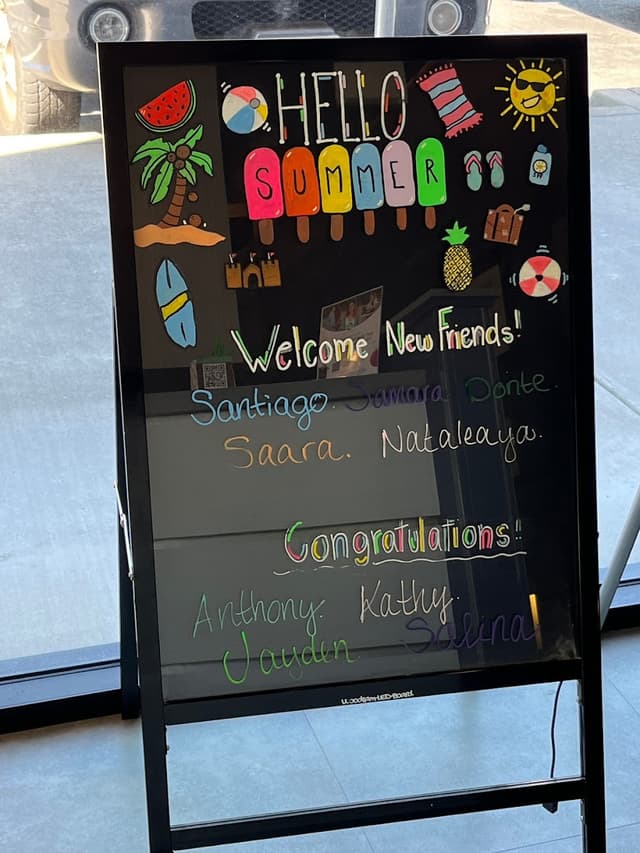 HELLO
SUMMER
Welcome New Friends!
Santiago. Samara Donte.
Saara. Nataleaya.
Congratulations!!
Anthony. Kathy.
Jayden. Salina